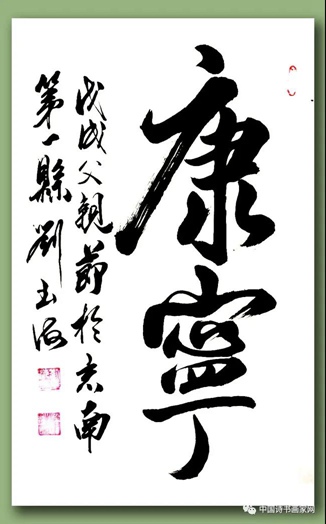 康寧
戊戌父親節於京南
第一縣劉玉海
中国诗书画家网